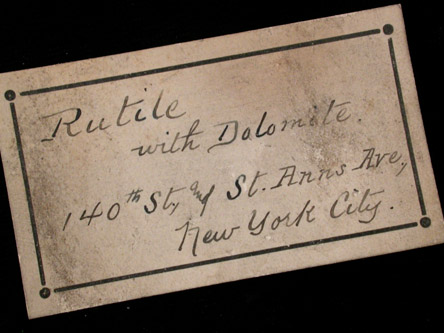 Rutile
with Dolomite.
140th St, and St. Anns Ave,
New York City.